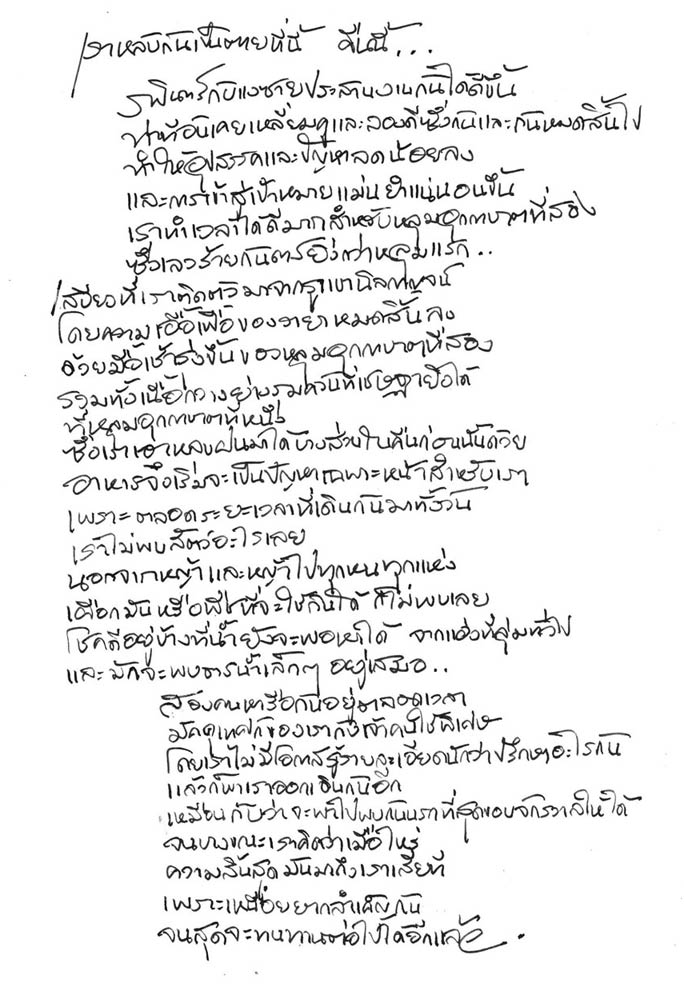 เราหลับกันเป็นตายที่นี่ คืนนี้...
รพินทร์กับแงซายประสานงานกันได้ดีขึ้น
ท่าทีอันเคยเหลี่ยมคูและลองดีซึ่งกันและกันหมดสิ้นไป
ทำให้อุปสรรคและปัญหาลดน้อยลง
และการเข้าสู่เป้าหมายแม่นยำแน่นอนขึ้น
เราทำเวลาได้ดีมากสำหรับหลุมอุกกาบาตที่สอง
ซึ่งเลวร้ายกันดารยิ่งกว่าหลุมแรก..
เสบียงที่เราติดตัวมาจาก
โดยความเอื้อเฟื้อของวายาหมดสิ้นลง
ด้วยมื้อเช้าส่งขึ้นของหลุมอุกกาบาตที่สอง
รวมทั้งเนื้อกวางย่างรมควันที่เชษฐายิงได้
ที่หลุมอุกกาบาตที่หนึ่ง
ซึ่งเราเอาหลบฝนมาได้บ้างส่วนในคืนก่อนนั้นด้วย
อาหารจึงเริ่มจะเป็นปัญหาเฉพาะหน้าสำหรับเรา
เพราะตลอดระยะเวลาที่เดินกันมาทั้งวัน
เราไม่พบสัตว์อะไรเลย
นอกจากหญ้าและหญ้าไปทุกหนทุกแห่ง
เผือกมันหรือพืชที่จะใช้กินได้ ก็ไม่พบเลย
โชคดีอยู่บ้างที่น้ำยังจะพอหาได้ จากแอ่งที่ลุ่มทั่วไป
และมักจะพบธารน้ำเล็กๆ อยู่เสมอ..
สองคนหารือกันอยู่ตลอดเวลา
มัคคุเทศก์ของเรากับเจ้าคนใช้พิเศษ
โดยเราไม่มีโอกาสรู้รายละเอียดนักว่าปรึกษาอะไรกัน
แล้วก็พาเราออกเดินกันอีก
เหมือนกับว่าจะพาไปพบกับนรกที่สุดขอบจักรวาลให้ได้
จนบางขณะเราคิดว่าเมื่อไหร่
ความสิ้นสุดมันมาถึงเราเสียที
เพราะเหนื่อยยากลำเค็ญกัน
จนสุดจะทนทานต่อไปได้อีกแล้ว.